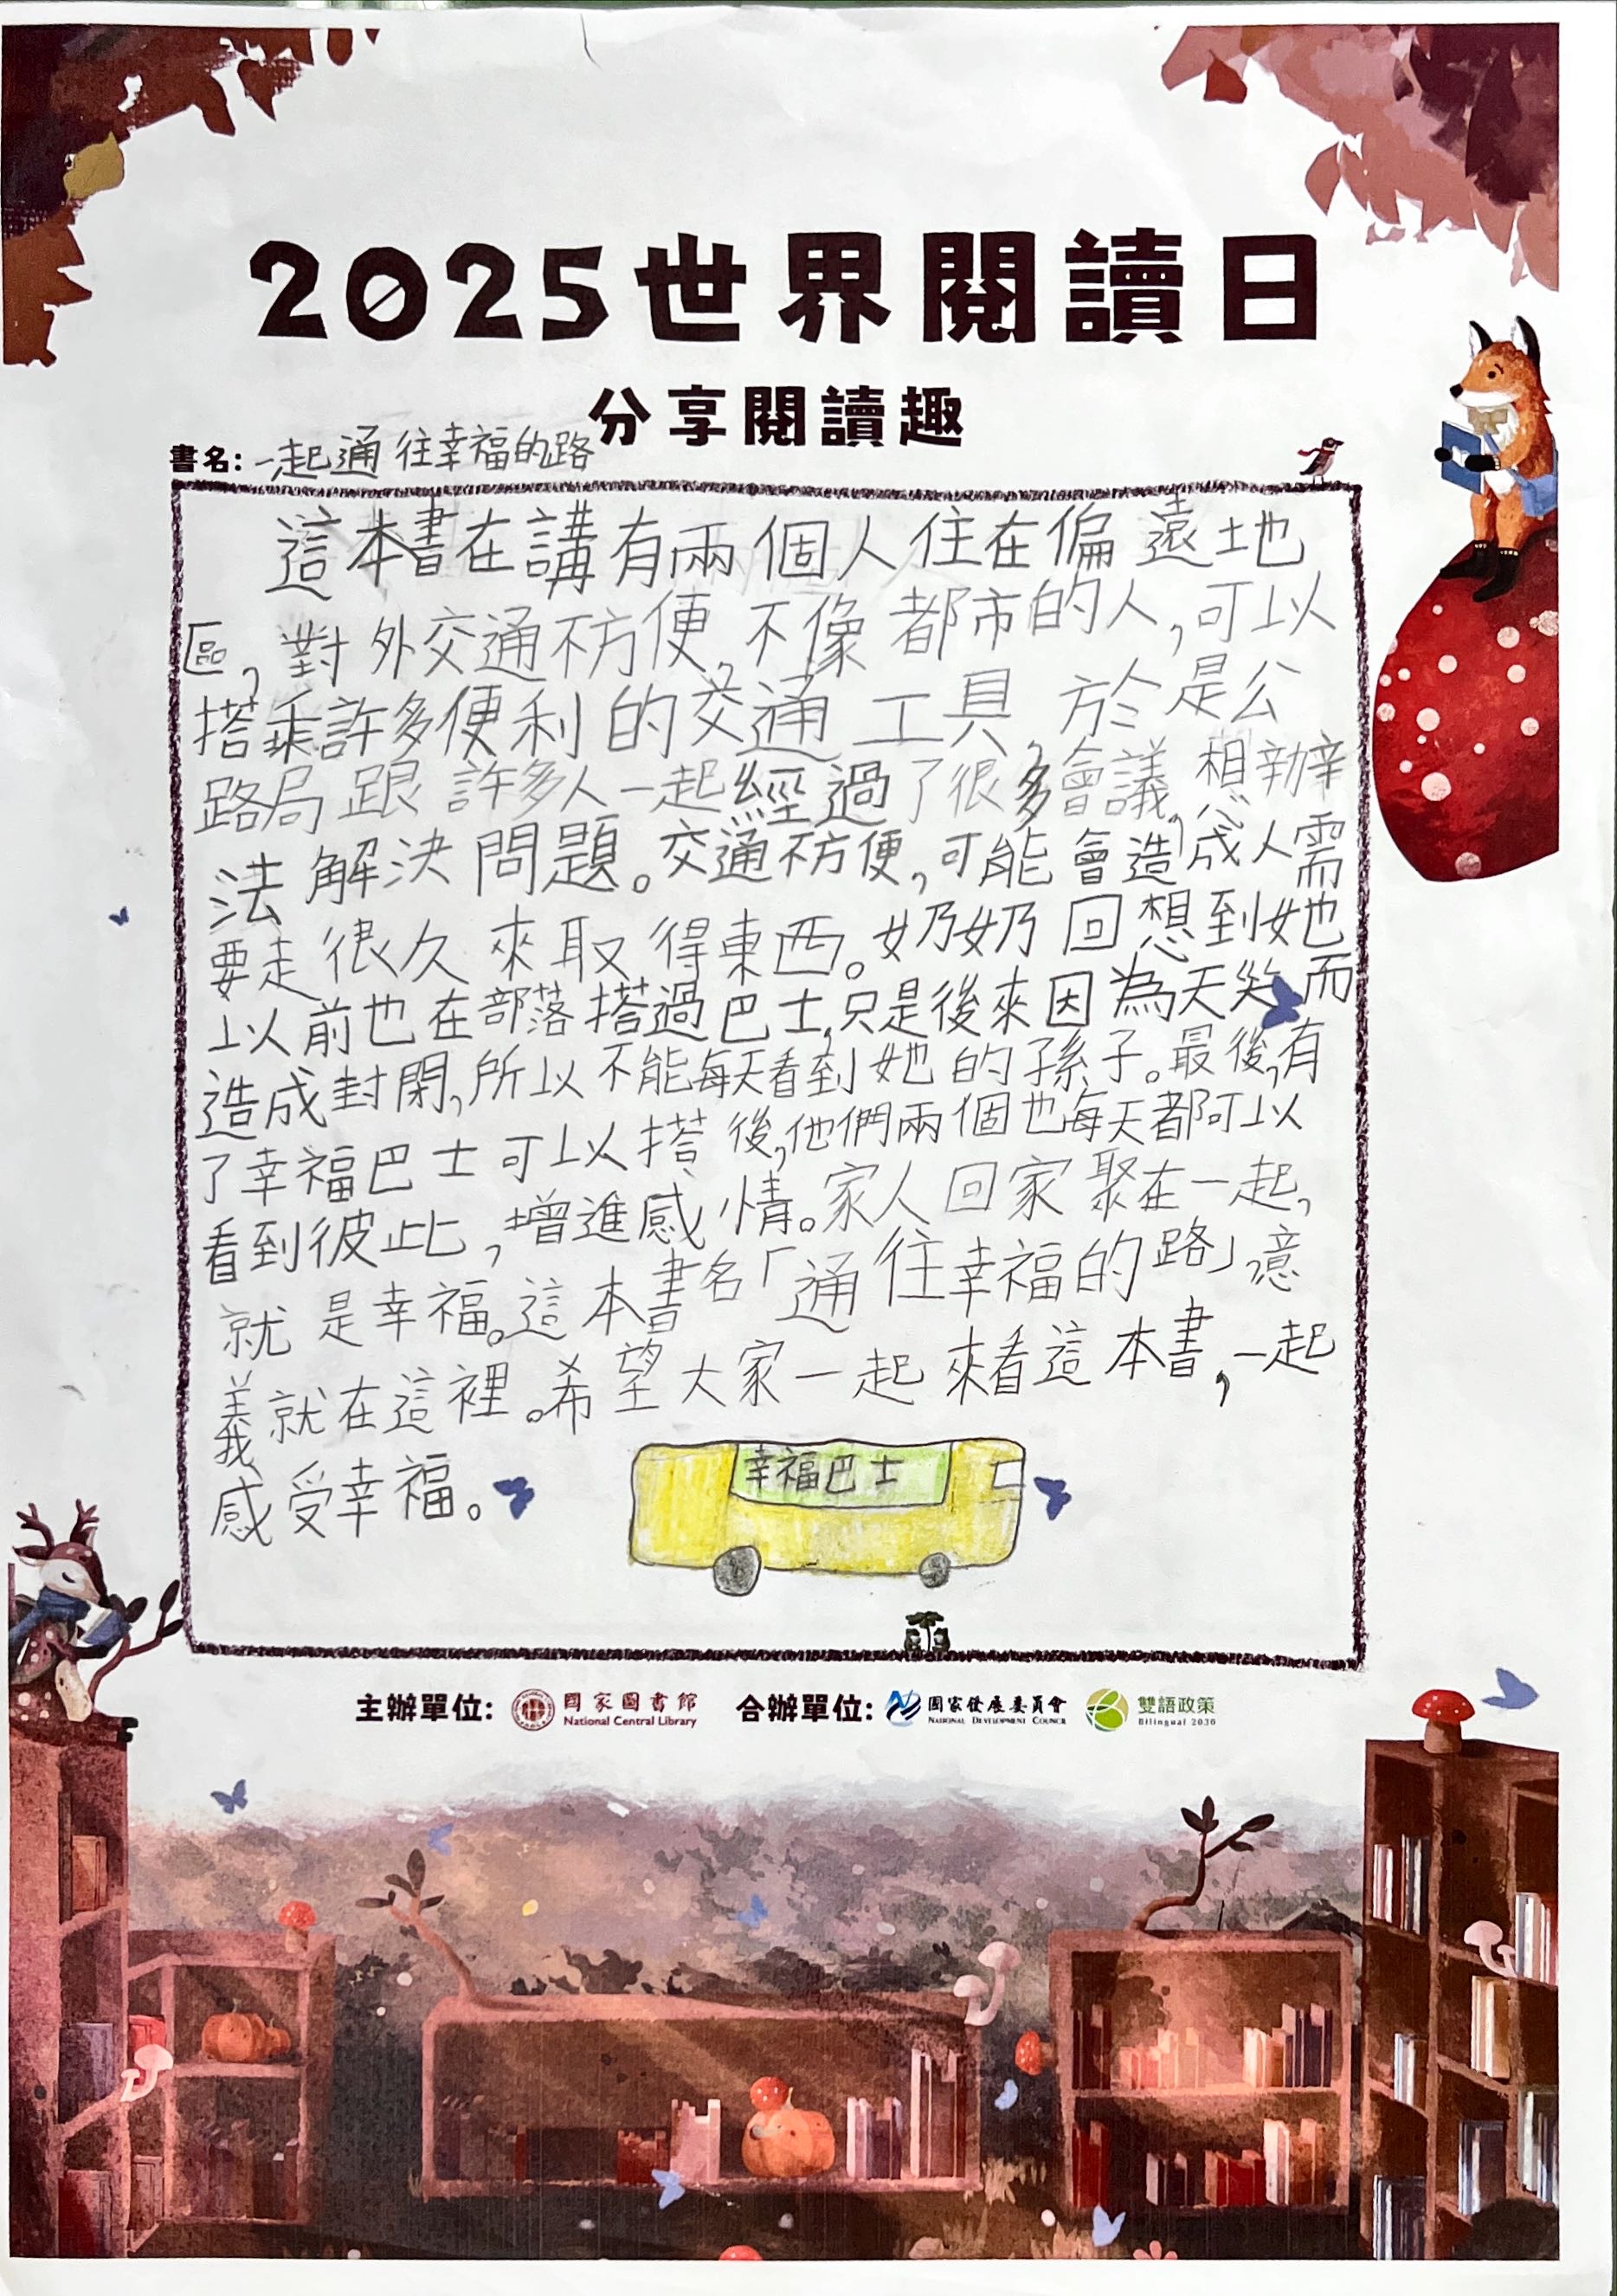 2025世界閱讀日
分享閱讀趣
書名：一起通往幸福的路
這本書在講有兩個人住在偏遠地
區,對外交通不方便,不像都市的人,可以
搭乘許多便利的交通工具,於是公
路局跟許多人一起經過了很多會議,想辦
法解決問題。交通不方便,可能會造成人需
要走很久來取得東西。奶奶回想到她
以前也在部落搭過巴士,只是後來因為天災而
造成封閉,所以不能每天看到她的孫子。最後,有
了幸福巴士可以搭後,他們兩個也每天都可以
看到彼此,增進感情。家人回家聚在一起,
就是幸福。這本書名「通往幸福的路」,意
義就在這裡。希望大家一起來看這本書,一起
感受幸福。
幸福巴士
主辦單位: 國家圖書館 National Central Library 合辦單位: 國家發展委員會 NATIONAL DEVELOPMENT COUNCIL 雙語政策 Bilingual 2030